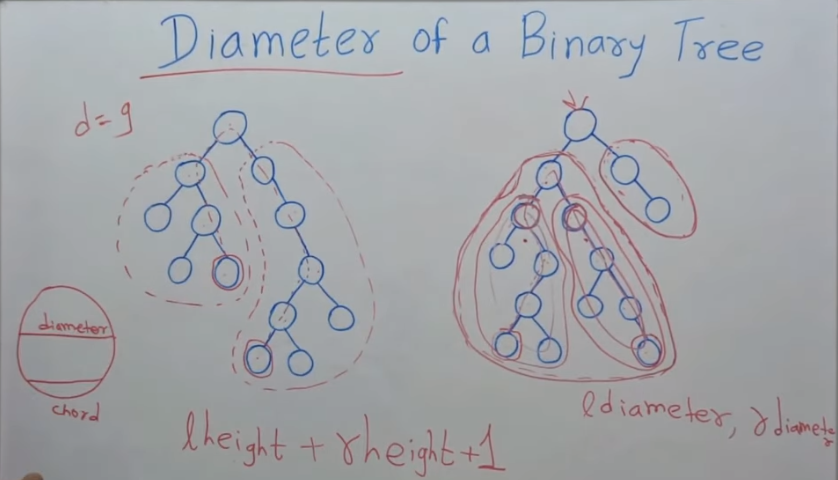 Diameter of a Binary Tree
d=9
diameter
chord
lheight + rheight+1
ldiameter, rdiameter